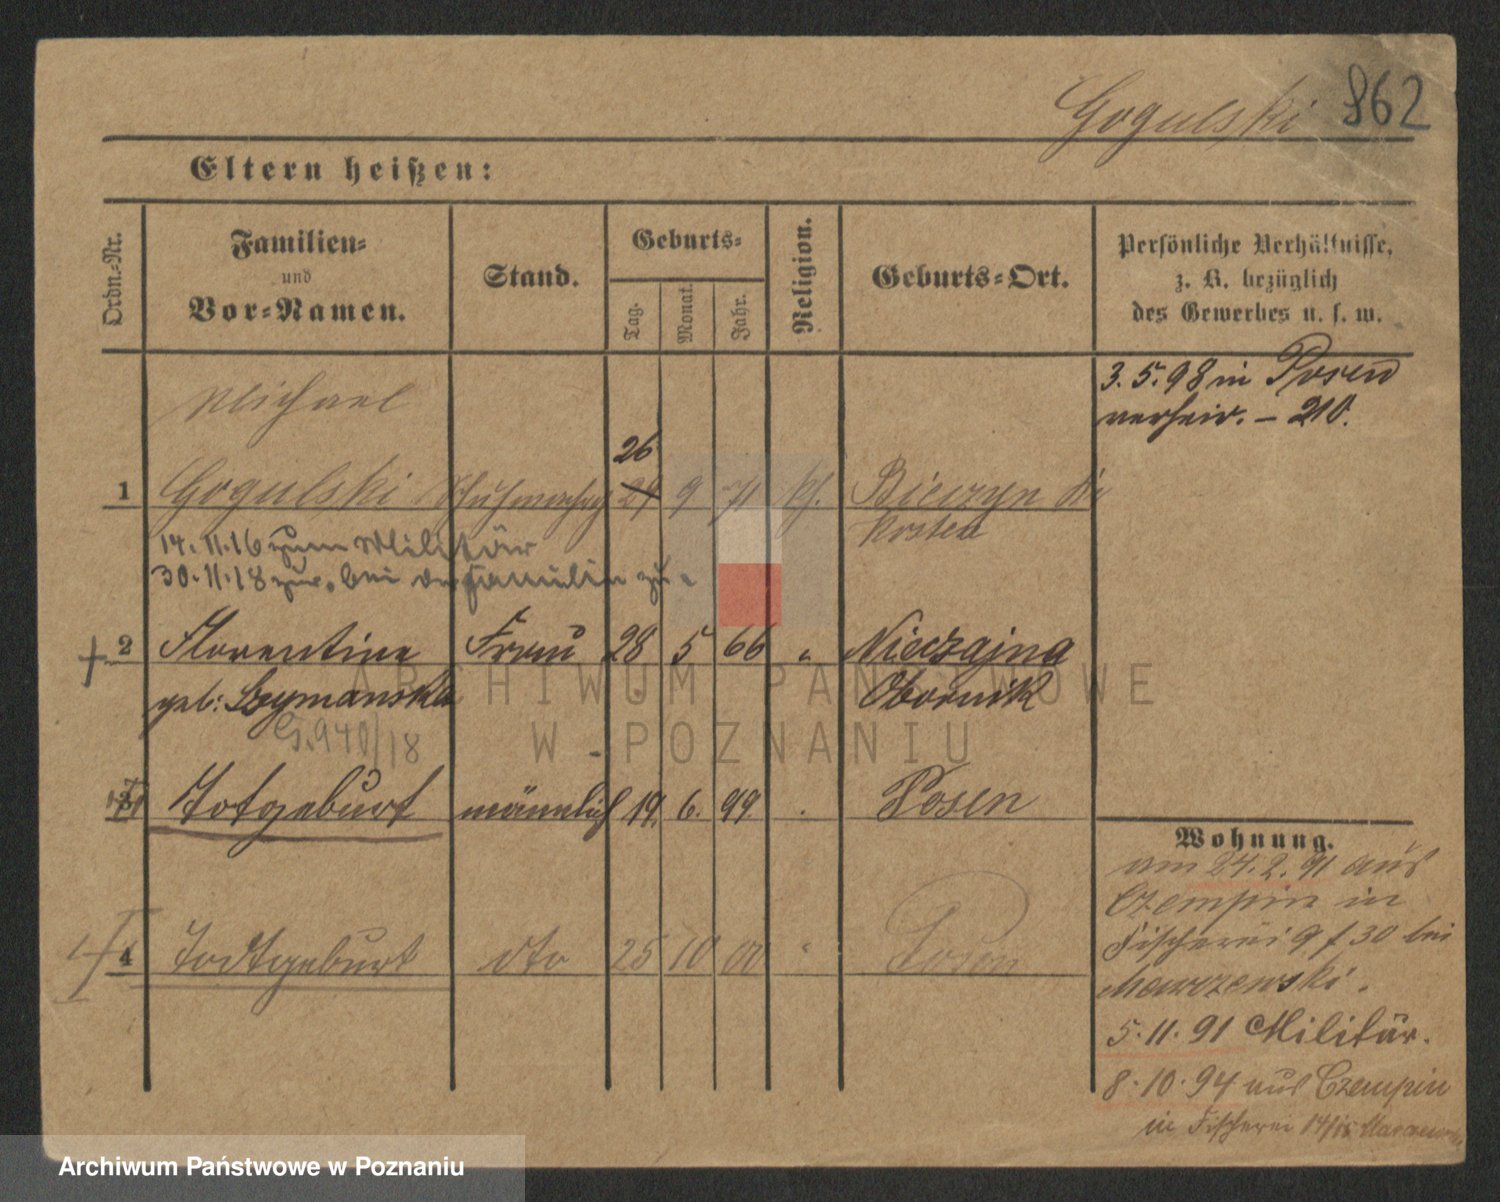 Gogulski 862
Eltern heißen:
Ordn.-Nr.
Familien-
und
Vor-Namen.
Stand.
Geburts-
Tag.
Monat.
Jahr.
Religion.
Geburts-Ort.
Persönliche Verhältnisse,
z. B. bezüglich
des Gewerbes u. s. w.
3. 5. 98 in Posen
verheir. – 210.
Michael
26
1 Gogulski 9 71 kf. Bieczyn
Kosten
14. 11. 16 zum Militär
30. 11. 18 zur. bei der Familie zu.
2 Florentine Frau 28 5 66 " Nieczajna
geb: Szymanska Obornik
G. 940/18
3 Totgeburt männlich 19. 6. 99. Posen
4 Todtgeburt dto 25 10 00 " Posen
Wohnung.
am 24. 2. 91 aus
Czempin in
Fischerei 9 f 30 bei
5. 11. 91 Militär.
8. 10. 94 aus Czempin
in Fischerei 14/15
ARCHIWUM PAŃSTWOWE
W POZNANIU
Archiwum Państwowe w Poznaniu